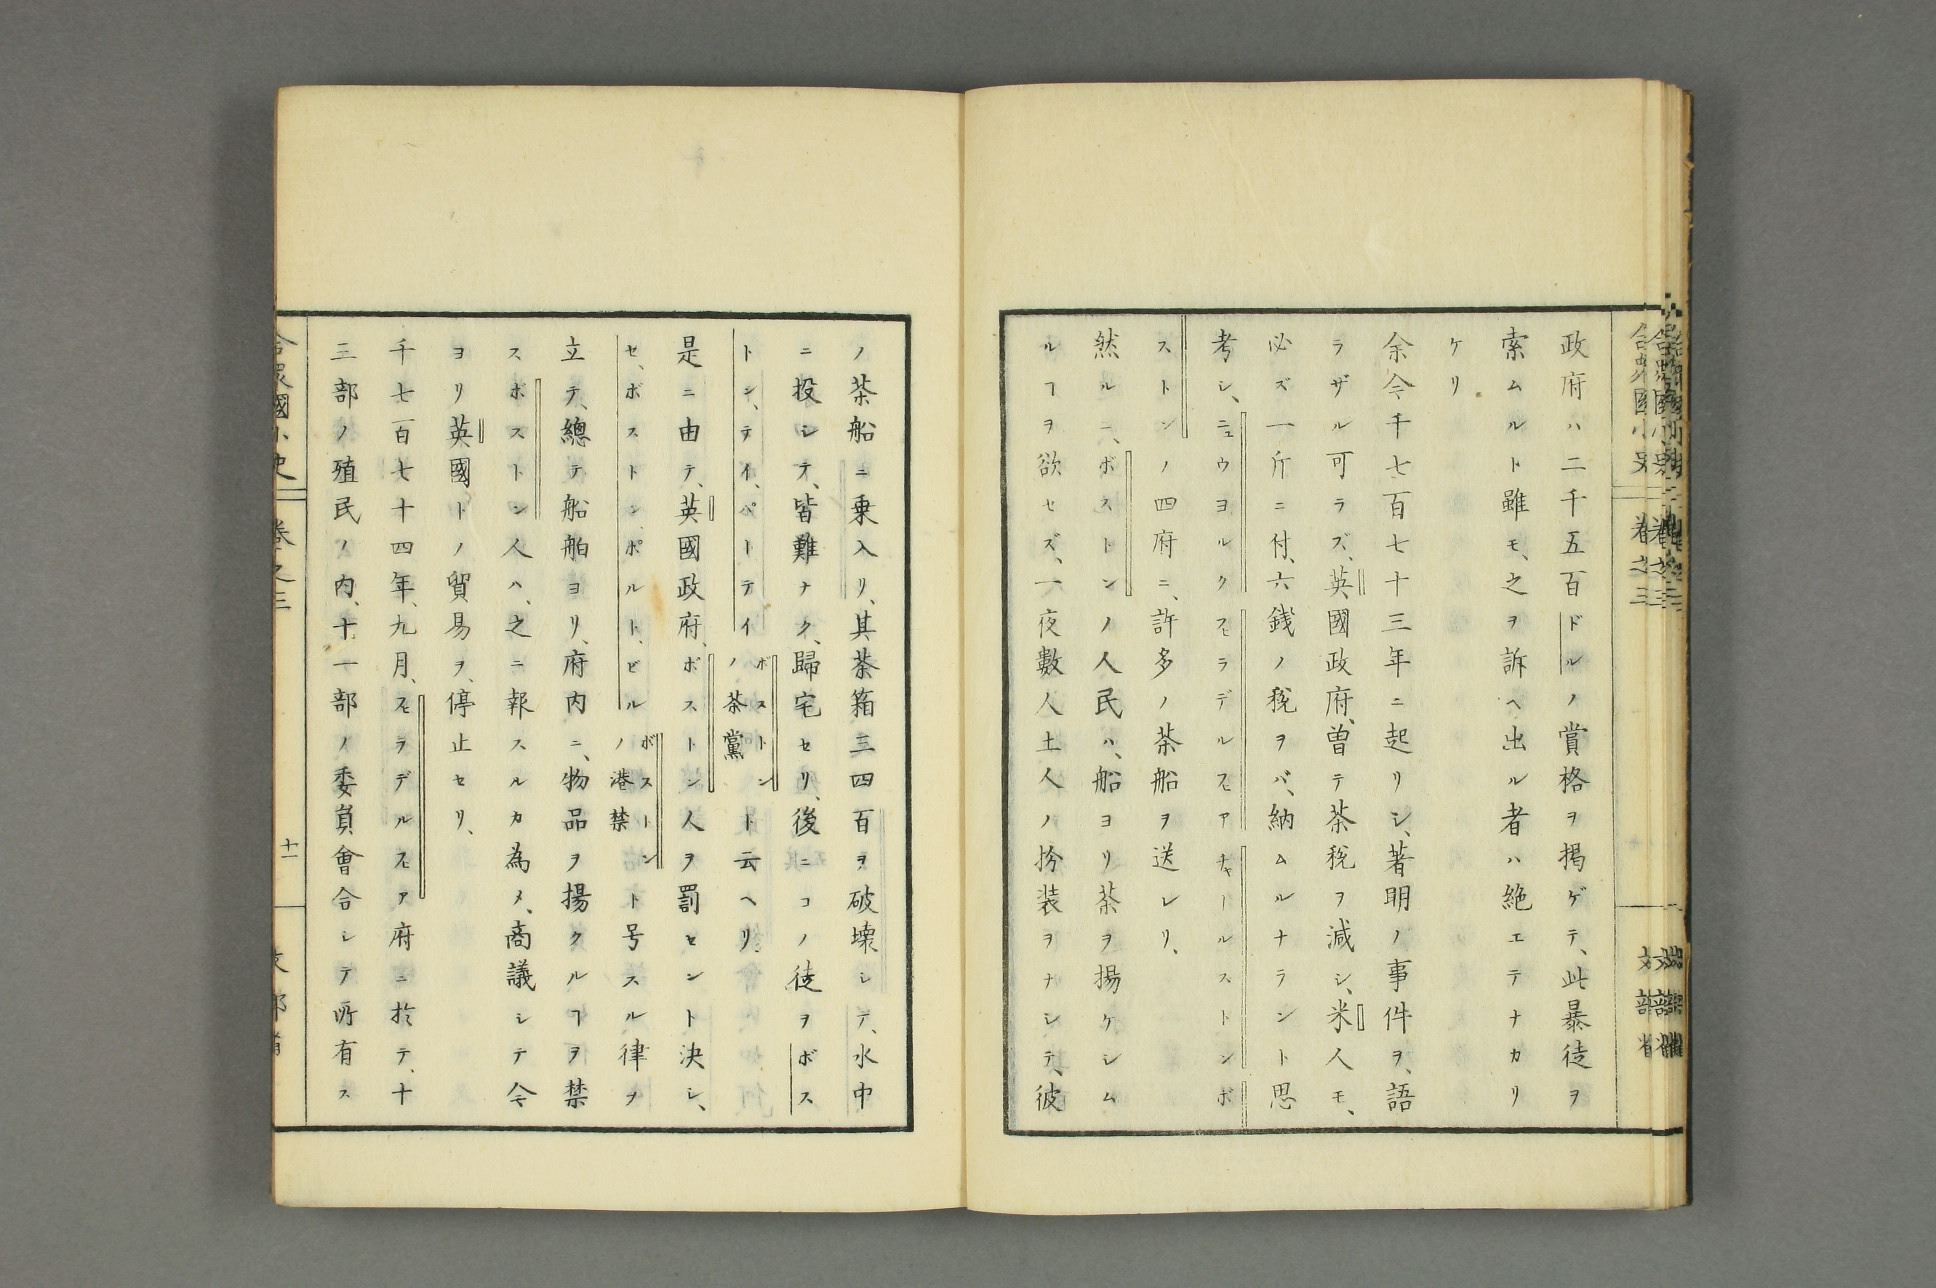 政府ハ二千五百ドルノ賞格ヲ掲ゲテ、此暴徒ヲ
索ムルト雖モ、之ヲ訴ヘ出ル者ハ絶エテナカリ
ケリ
余今千七百七十三年ニ起リシ、著明ノ事件ヲ、語
ラザル可ラズ、英國政府、曽テ茶税ヲ減シ、米人モ、
必ズ一斤ニ付、六銭ノ税ヲバ、納ムルナラント思
考シ、ニュウヨルクヒラデルヒアチャールストンボ
ストンノ四府ニ、許多ノ茶船ヲ送レリ、
然ルニ、ボストンノ人民ハ、船ヨリ茶ヲ揚ケシム
ルヿヲ欲セズ、一夜數人土人ノ扮装ヲナシテ、彼
ノ茶船ニ乗入リ、其茶箱三四百ヲ破壊シテ、水中
ニ投シテ、皆難ナク、歸宅セリ、後ニコノ徒ヲボス
トン、テイ、ペトテイボストンノ茶黨ト云ヘリ、
是ニ由テ、英國政府、ボストン人ヲ罰セント決シ、
セ、ボストン、ポルト、ビルボストンノ港禁ト号スル律ヲ
立テ、總テ船舶ヨリ、府内ニ、物品ヲ揚クルヿヲ禁
スボストン人ハ、之ニ報スルカ為メ、商議シテ今
ヨリ英國トノ貿易ヲ、停止セリ、
千七百七十四年、九月、ヒラデルヒア府ニ於テ、十
三部ノ殖民ノ内、十一部ノ委員會合シテ所有ス
合衆國小史 卷之三 十一 文部省